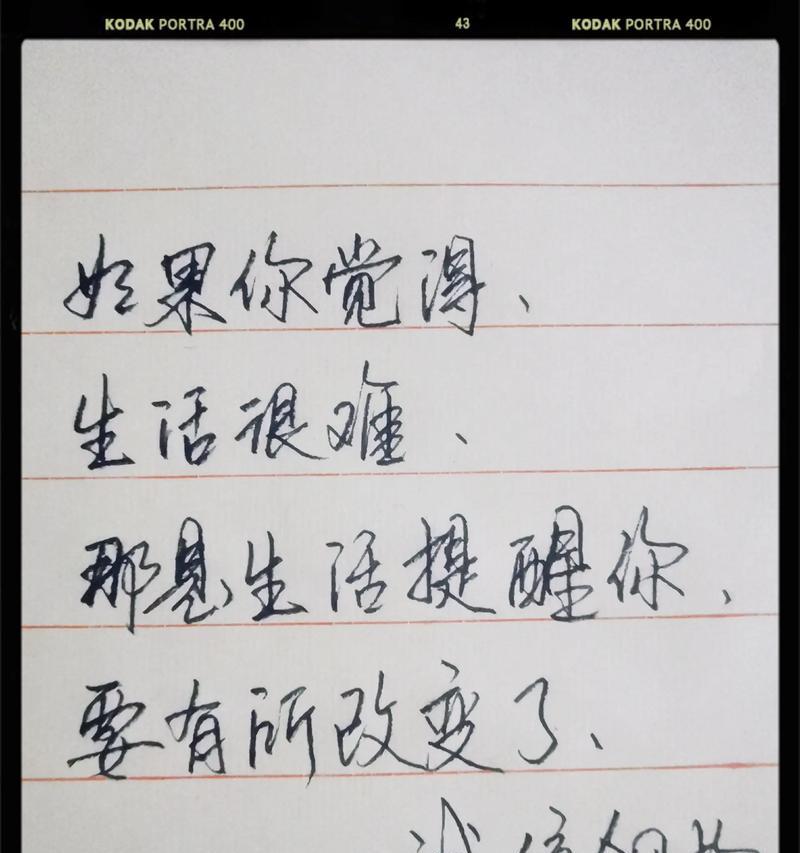 KODAK PORTRA 400 43 KODAK PORTRA 400
如果你觉得、
生活很难、
那是生活提醒你、
要有所改变了、